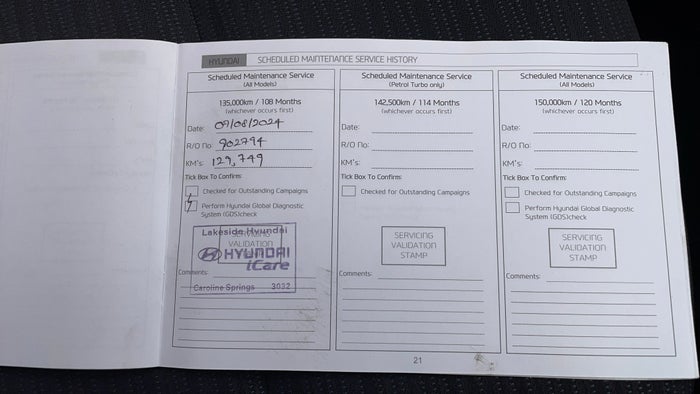 HYUNDAI SCHEDULED MAINTENANCE SERVICE HISTORY
Scheduled Maintenance Service
(All Models)
135,000km / 108 Months
(whichever occurs first)
Date: 09/08/2024
R/O No: 902794
KM's: 129,749
Tick Box To Confirm:
Checked for Outstanding Campaigns
Perform Hyundai Global Diagnostic
System (GDS)check
SERVICING
VALIDATION
Lakeside Hyundai
HYUNDAI
iCare
Caroline Springs 3032
Comments:
Scheduled Maintenance Service
(Petrol Turbo only)
142,500km / 114 Months
(whichever occurs first)
Date:
R/O No:
KM's:
Tick Box To Confirm:
Checked for Outstanding Campaigns
SERVICING
VALIDATION
STAMP
Comments:
Scheduled Maintenance Service
(All Models)
150,000km / 120 Months
(whichever occurs first)
Date:
R/O No:
KM's:
Tick Box To Confirm:
Checked for Outstanding Campaigns
Perform Hyundai Global Diagnostic
System (GDS)check
SERVICING
VALIDATION
STAMP
Comments:
21